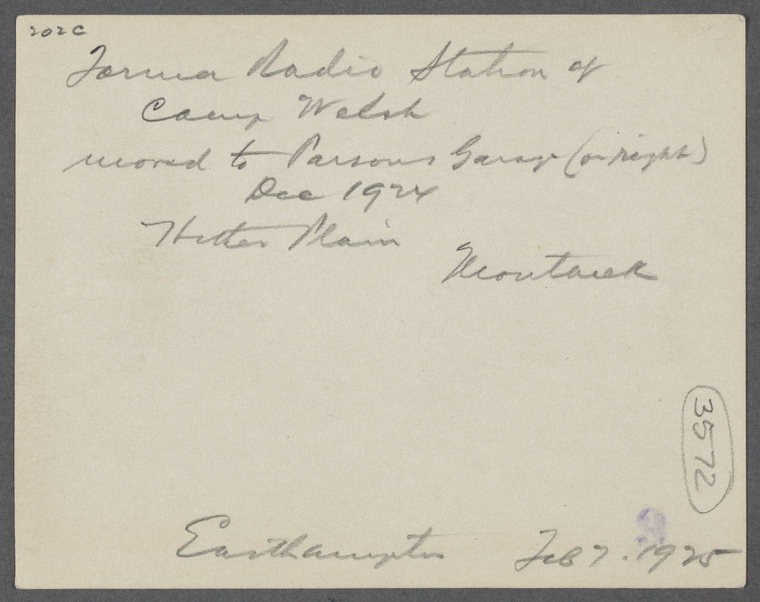 202C
Former Radio Station of
Camp Welsh
moved to Parsons Garage (on right)
Dec 1924
Hither Plain
Montauk
3572
Easthampton Feb 7. 1925